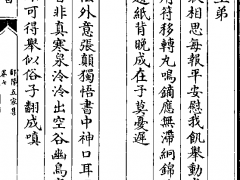 弟
相思每報平安慰我飢舉動
符移轉丸鳴鏑應無滯絅錦
紙背晚成在子莫憂遲
法外意張顛獨悟書中神口耳
非真寒泉泠泠出空谷幽鳥
可得舉似俗子翻成嗔
鄱陽五家集